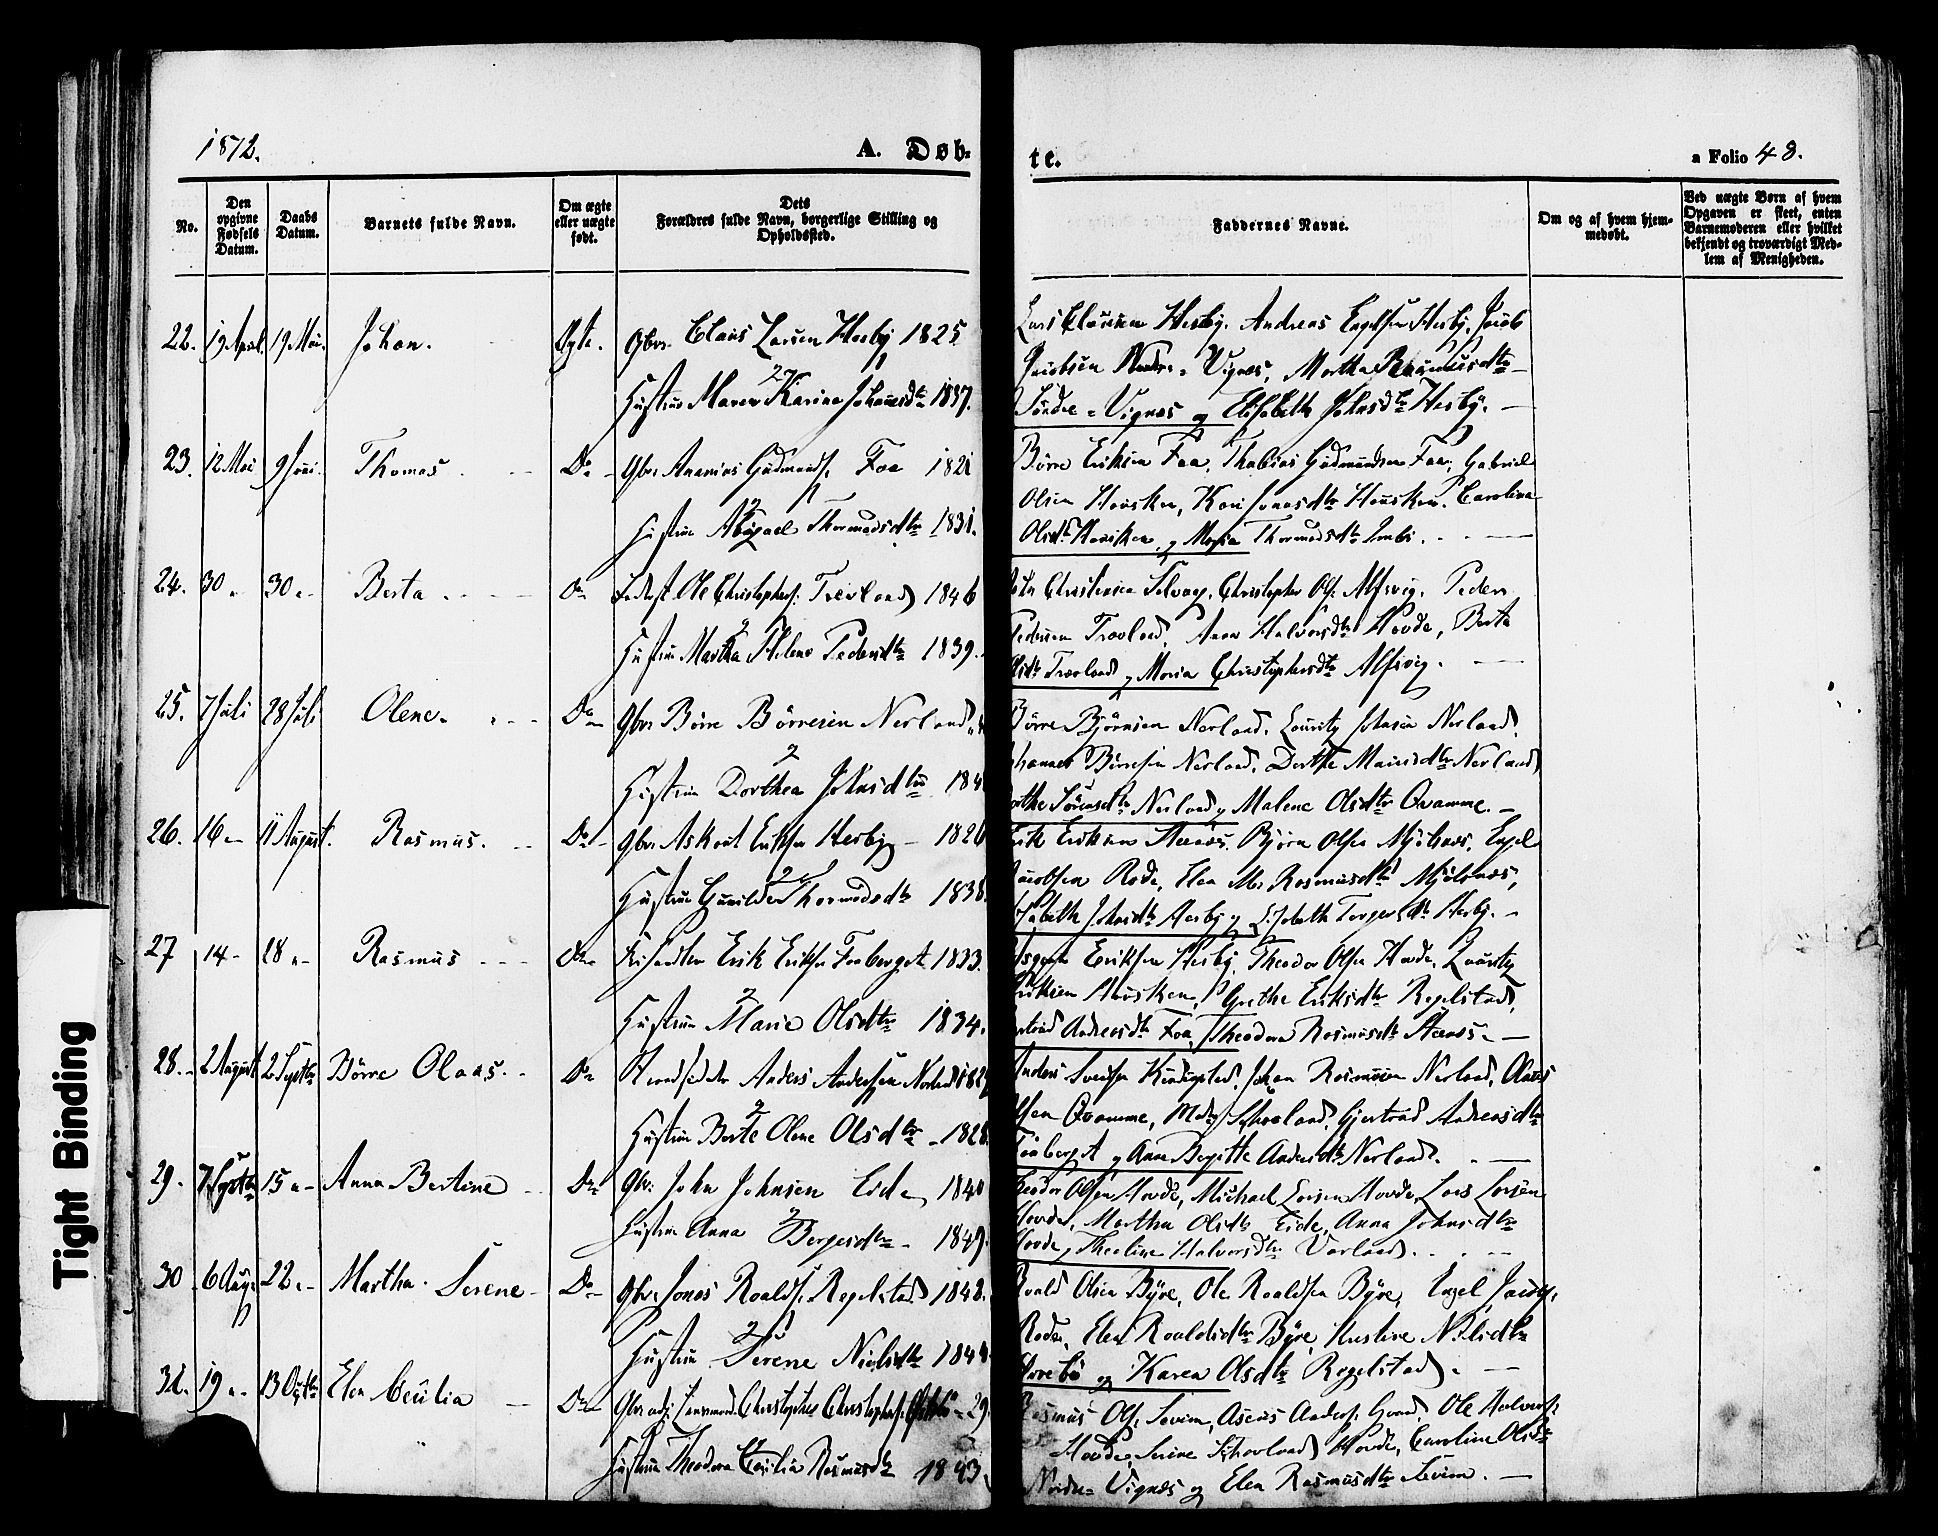 1872.
A. Døb-
te.
a Folio 48.
No.
Den opgivne Fødsels Datum.
Daabs Datum.
Barnets fulde Navn.
Om ægte eller uægte født.
Dets Forældres fulde Navn, borgerlige Stilling og Opholdssted.
Faddernes Navne.
Om og af hvem hjemmedøbt.
Ved uægte Børn af hvem Opgaven er skeet, enten Barnemoderen eller hvilket bekjendt og troværdigt Medlem af Menigheden.
22. 19 April. 19 Mai. Johan. Ægte. Gbr. Claus Larsen Hesby 1825
Hustru Maren Karine Johnsdtr 1837.
Lars Clausen Hesby, Andreas Engelsen Hesby, Jacob
Jacobsen Nordre-Vignes, Martha Rasmusdtr
Søndre-Vignes og Elisabeth Johnsdtr Hesby.
23. 12 Mai 9 Juni. Thomas Do Gbr Ananias Gudmunds. Foa 1821
Hustru Abigael Thormodsdtr 1831.
Børre Eriksen Foa, Thobias Gudmundsen Foa, Gabriel
Olsen Hausken, Kari Jonasdtr Hausken, Carolina
Olsdtr Hausken og Maria Thormodsdtr
24. 30 " 30 " Berta Do Ole Christophers. Trovland 1846
Hustru Martha Helene Pedersdtr 1839.
Christensen Christopher Ols. Alfsvig, Peder
Pedersen Trovland, Anna Halvorsdtr Hovde, Berta
Olsdtr Trovland og Maria Christophersdtr Alfsvig.
25. 7 Juli 28 Juli Olene. Do Gbr Børre Børresen Nerland
Hustru Dorthea Johnsdtr 184
Børre Bjørnsen Nerland, Lauritz Johnsen Nerland,
Johannes Børresen Nerland, Dorthe Nerland,
Sørensdtr Nerland og Malene Olsdtr Qvamme.
26. 16 " 11 August. Rasmus. Do Gbr Askout Eriksen Hesby 1826
Hustru Gunilde Thormodsdtr 1838.
Erik Eriksen Bjørn Olsen Mjølsnes, Engel
Jacobsen Rode, Elen M. Rasmusdtr Mjølsnes,
Elisabeth Johnsdtr Hesby og Elisabeth Torgersdtr Hesby.
27 14 " 28 " Rasmus Do Erik Eriksen Faaberget 1833.
Hustru Marie Olsdtr 1834.
Eriksen Hesby, Theodor Olsen Hovde, Lauritz
Eriksen Hausken, Grethe Eriksdtr Regelstad,
Andreasdtr Foa, Theodora Rasmusdtr
28. 2 August 2 Septbr Børre Olaas. Do Anders Andersen Nerland 182
Hustru Berte Olene Olsdtr 1828.
Anders Svensen Johan Rasmusen Nerland, Olaus
Olsen Qvamme, Gjertrud Andreasdtr
Faaberget og Anne Birgitte Andersdtr Nerland.
29. 7 Septbr 15 " Anna Bertine Do Gbr. John Johnsen Eide 1840
Hustru Anna Børgesdtr 1849.
Theodor Olsen Hovde, Michael Larsen Hovde, Lars Larsen
Hovde, Martha Olsdtr Eide, Anna Johnsdtr
Hovde, Theoline Halvorsdtr Vorland.
30 6 Aug. 22 " Martha Serene Do Gbr. Jonas Roalds. Regelstad 1848.
Hustru Serene Nielsdtr 184
Roald Olsen Byre, Ole Roaldsen Byre, Engel Jacobs.
Rode, Elen Roaldsdtr Byre, Nilsdtr
og Karen Olsdtr Regelstad.
31. 19 " 13 Octbr Elen Cecilia Do Christopher Christophers. 29.
Hustru Theodora Cecilia Rasmusdtr 1843.
Rasmus Ols. Sevim, Anders. Ole Halvors.
Hovde, Serine Hovde, Caroline Olsdtr
Nordre-Vignes og Elen Rasmusdtr Sevim.
Tight Binding